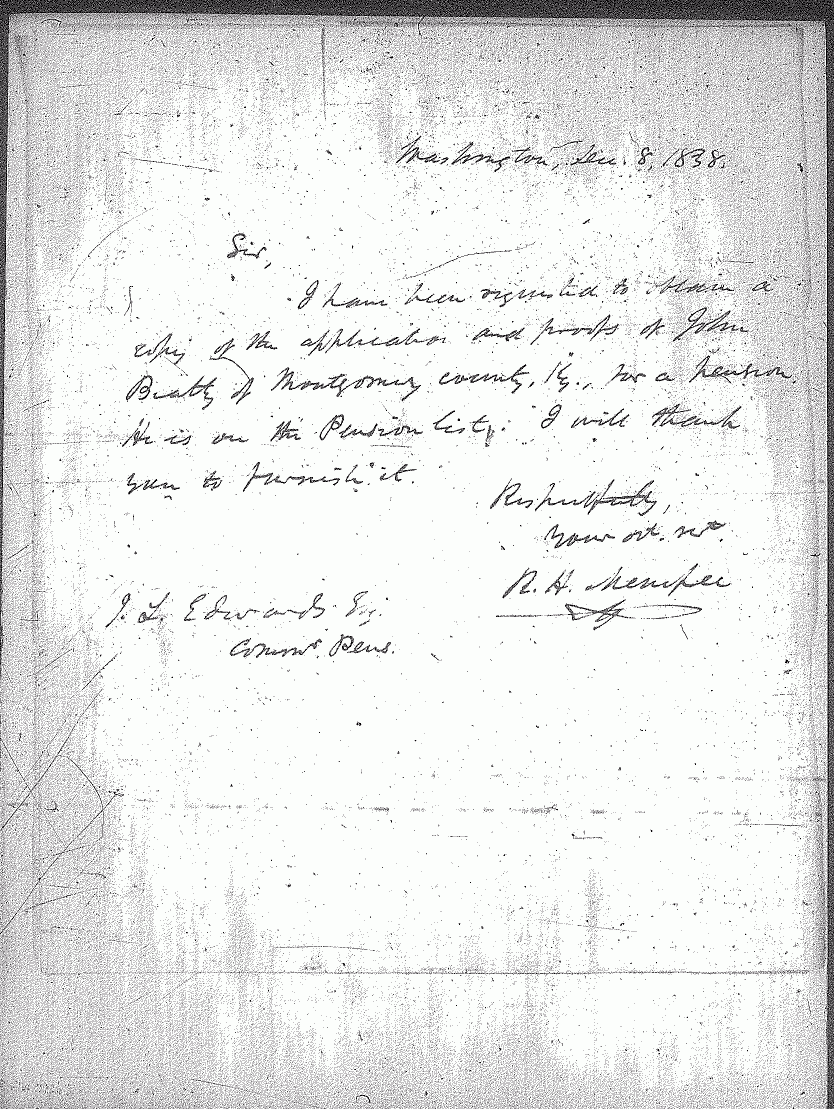 Washington, Dec. 8, 1838.
Sir,
I have been requested to obtain a
copy of the application and proofs of John
Beatty of Montgomery county, Ky., for a pension.
He is on the Pension list. I will thank
you to furnish it.
Respectfully,
Your obt. sert.
R. H. Menifee
J. L. Edwards Esq.
Commr. Pens.